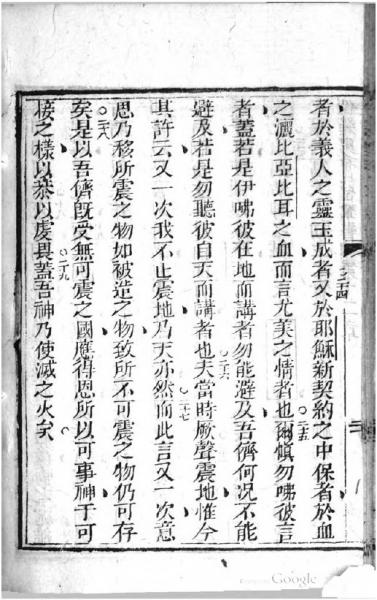 二十四
者於義人之靈玉成者又於耶穌新契約之中保者於血
二十五
之灑比亞比耳之血而言尤美之情者也爾慎勿咈彼言
者蓋若是伊咈彼在地而講者勿能避及吾儕何况不能
二十六
避及若是勿聽彼自天而講者也天當時厥聲震地惟今
二十七
其許云又一次我不止震地乃天亦然而此言又一次意
思乃移所震之物如被造之物致所不可震之物仍可存
二十八
矣是以吾儕旣受無可震之國應得恩所以可事神于可
二十九
接之樣以恭以虔畏蓋吾神乃使滅之火矣
Google